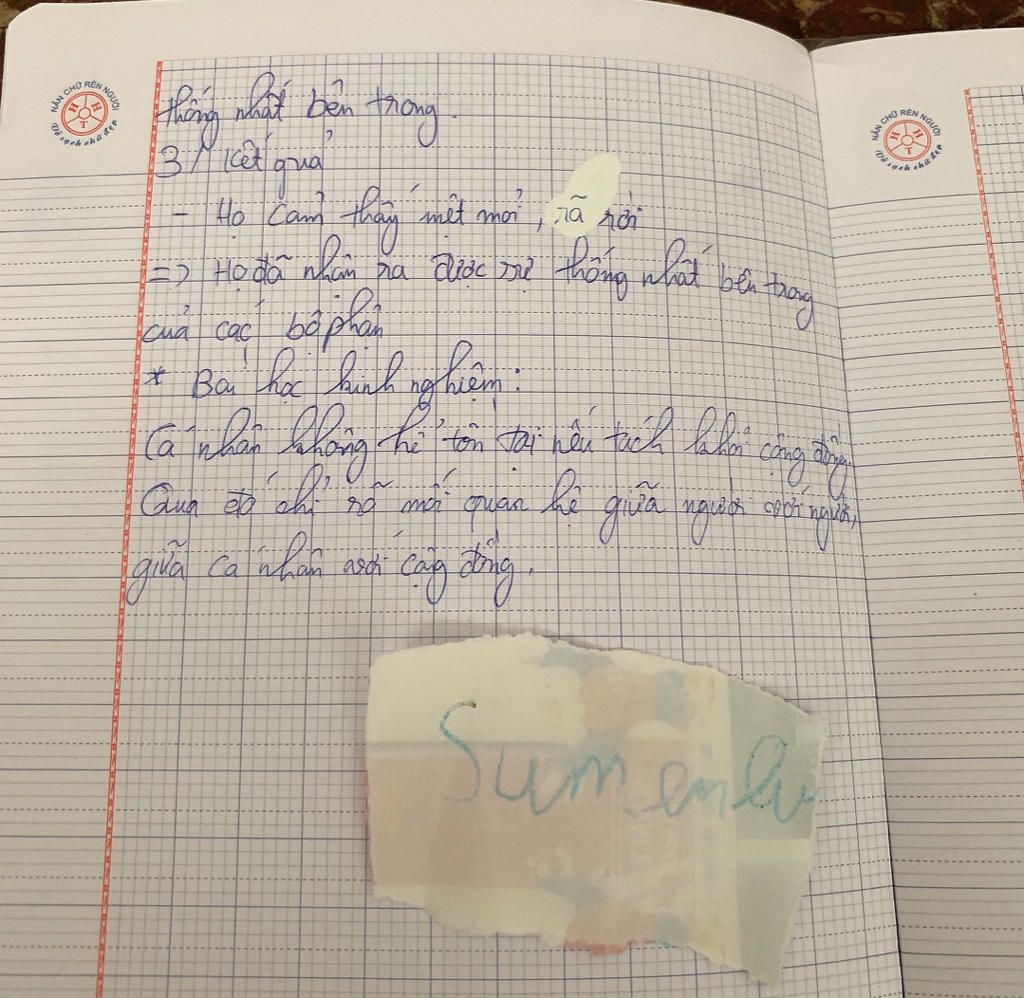 NẮN CHỮ RÈN NGƯỜI
H H T
Vở sạch chữ đẹp
thống nhất bên trong.
3/ Kết quả
- Họ cảm thấy mệt mỏi, rã rời
=> Họ đã nhận ra được sự thống nhất bên trong
của các bộ phận
* Bài học kinh nghiệm:
Cá nhân không hề tồn tại nếu tách khỏi cộng đồng.
Qua đó chỉ rõ mối quan hệ giữa người với người,
giữa cá nhân với cộng đồng.
Sum
NẮN CHỮ RÈN NGƯỜI
H H T
Vở sạch chữ đẹp